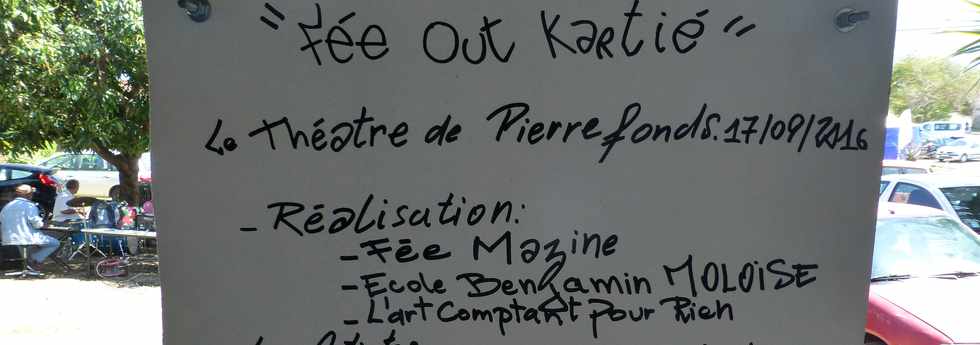 "Fée Out Kartié"
Le Théâtre de Pierrefonds. 17/09/2016
- Réalisation:
- Fée Mazine
- Ecole Benjamin MOLOÏSE
- L'art Comptant Pour Rien